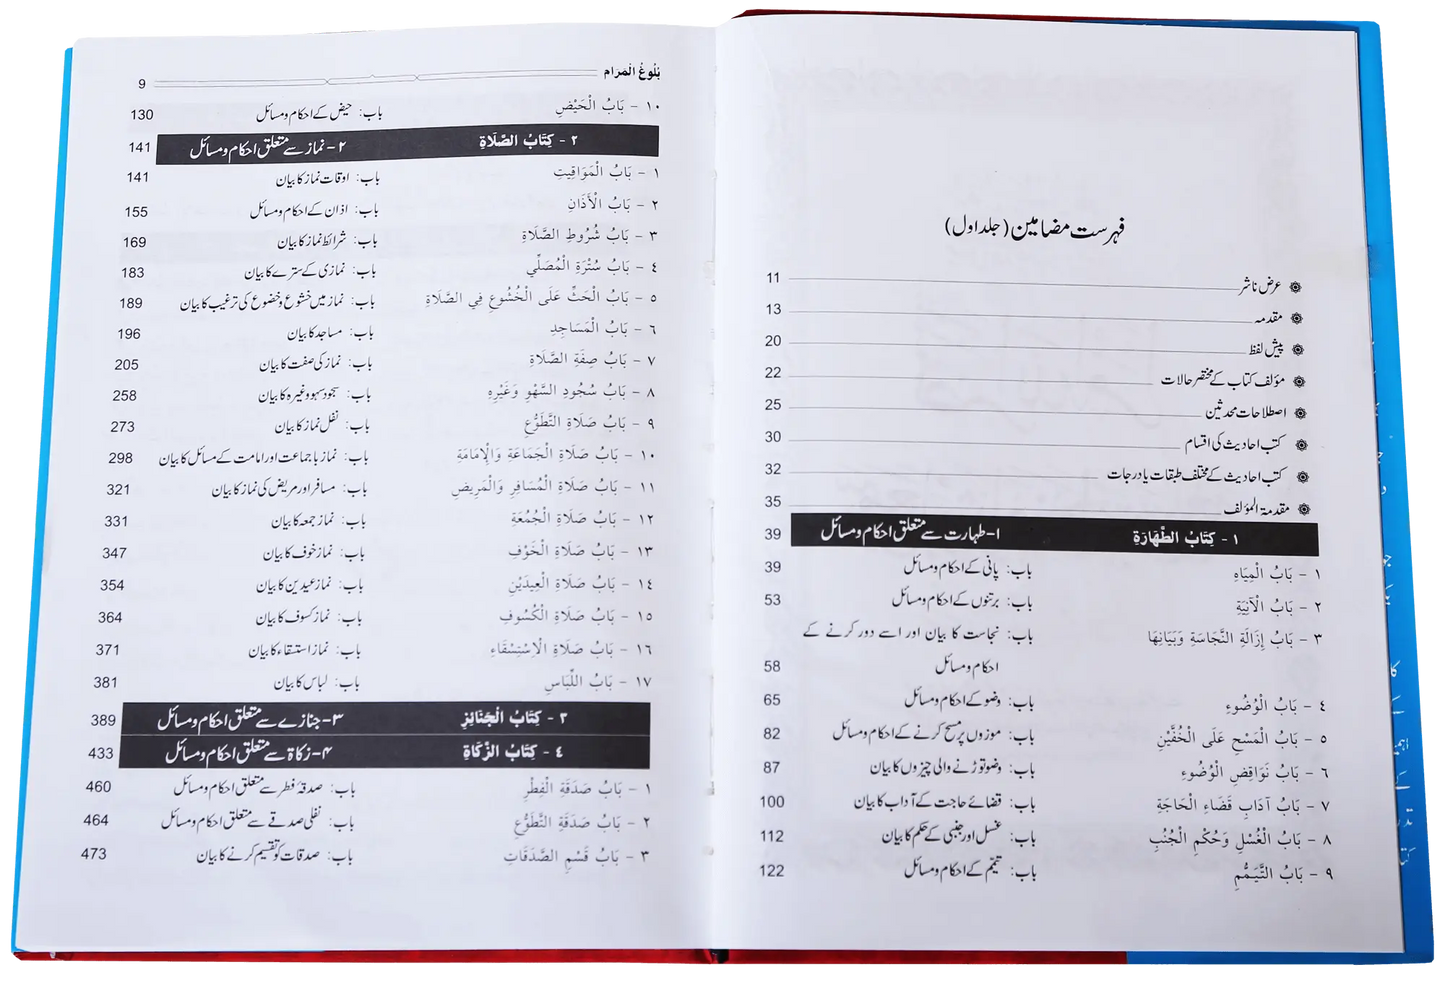 فہرست مضامین (جلد اول)
۞ عرض ناشر 11
۞ مقدمہ 13
۞ پیش لفظ 20
۞ مؤلف کتاب کے مختصر حالات 22
۞ اصطلاحات محدثین 25
۞ کتب احادیث کی اقسام 30
۞ کتب احادیث کے مختلف طبقات یا درجات 32
۞ مقدمۃ المؤلف 35
١ - كِتَابُ الطَّهَارَةِ ۱- طہارت سے متعلق احکام و مسائل 39
١ - بَابُ الْمِيَاهِ باب: پانی کے احکام و مسائل 39
٢ - بَابُ الْآنِيَةِ باب: برتنوں کے احکام و مسائل 53
٣ - بَابُ إِزَالَةِ النَّجَاسَةِ وَبَيَانِهَا باب: نجاست کا بیان اور اسے دور کرنے کے
احکام و مسائل 58
٤ - بَابُ الْوُضُوءِ باب: وضو کے احکام و مسائل 65
٥ - بَابُ الْمَسْحِ عَلَى الْخُفَّيْنِ باب: موزوں پر مسح کرنے کے احکام و مسائل 82
٦ - بَابُ نَوَاقِضِ الْوُضُوءِ باب: وضو توڑنے والی چیزوں کا بیان 87
٧ - بَابُ آدَابِ قَضَاءِ الْحَاجَةِ باب: قضائے حاجت کے آداب کا بیان 100
٨ - بَابُ الْغُسْلِ وَحُكْمِ الْجُنُبِ باب: غسل اور جنبی کے حکم کا بیان 112
٩ - بَابُ التَّيَمُّمِ باب: تیمم کے احکام و مسائل 122
بُلُوغُ الْمَرَام 9
١٠ - بَابُ الْحَيْضِ باب: حیض کے احکام و مسائل 130
٢ - كِتَابُ الصَّلَاةِ ۲- نماز سے متعلق احکام و مسائل 141
١ - بَابُ الْمَوَاقِيتِ باب: اوقات نماز کا بیان 141
٢ - بَابُ الْأَذَانِ باب: اذان کے احکام و مسائل 155
٣ - بَابُ شُرُوطِ الصَّلَاةِ باب: شرائط نماز کا بیان 169
٤ - بَابُ سُتْرَةِ الْمُصَلِّي باب: نمازی کے سترے کا بیان 183
٥ - بَابُ الْحَثِّ عَلَى الْخُشُوعِ فِي الصَّلَاةِ باب: نماز میں خشوع و خضوع کی ترغیب کا بیان 189
٦ - بَابُ الْمَسَاجِدِ باب: مساجد کا بیان 196
٧ - بَابُ صِفَةِ الصَّلَاةِ باب: نماز کی صفت کا بیان 205
٨ - بَابُ سُجُودِ السَّهْوِ وَغَيْرِهِ باب: سجود سہو وغیرہ کا بیان 258
٩ - بَابُ صَلَاةِ التَّطَوُّعِ باب: نفل نماز کا بیان 273
١٠ - بَابُ صَلَاةِ الْجَمَاعَةِ وَالْإِمَامَةِ باب: نماز با جماعت اور امامت کے مسائل کا بیان 298
١١ - بَابُ صَلَاةِ الْمُسَافِرِ وَالْمَرِيضِ باب: مسافر اور مریض کی نماز کا بیان 321
١٢ - بَابُ صَلَاةِ الْجُمُعَةِ باب: نماز جمعہ کا بیان 331
١٣ - بَابُ صَلَاةِ الْخَوْفِ باب: نماز خوف کا بیان 347
١٤ - بَابُ صَلَاةِ الْعِيدَيْنِ باب: نماز عیدین کا بیان 354
١٥ - بَابُ صَلَاةِ الْكُسُوفِ باب: نماز کسوف کا بیان 364
١٦ - بَابُ صَلَاةِ الْاِسْتِسْقَاءِ باب: نماز استسقاء کا بیان 371
١٧ - بَابُ اللِّبَاسِ باب: لباس کا بیان 381
٣ - كِتَابُ الْجَنَائِزِ ۳- جنازے سے متعلق احکام و مسائل 389
٤ - كِتَابُ الزَّكَاةِ ۴- زکاۃ سے متعلق احکام و مسائل 433
١ - بَابُ صَدَقَةِ الْفِطْرِ باب: صدقۂ فطر سے متعلق احکام و مسائل 460
٢ - بَابُ صَدَقَةِ التَّطَوُّعِ باب: نفلی صدقے سے متعلق احکام و مسائل 464
٣ - بَابُ قَسْمِ الصَّدَقَاتِ باب: صدقات کو تقسیم کرنے کا بیان 473